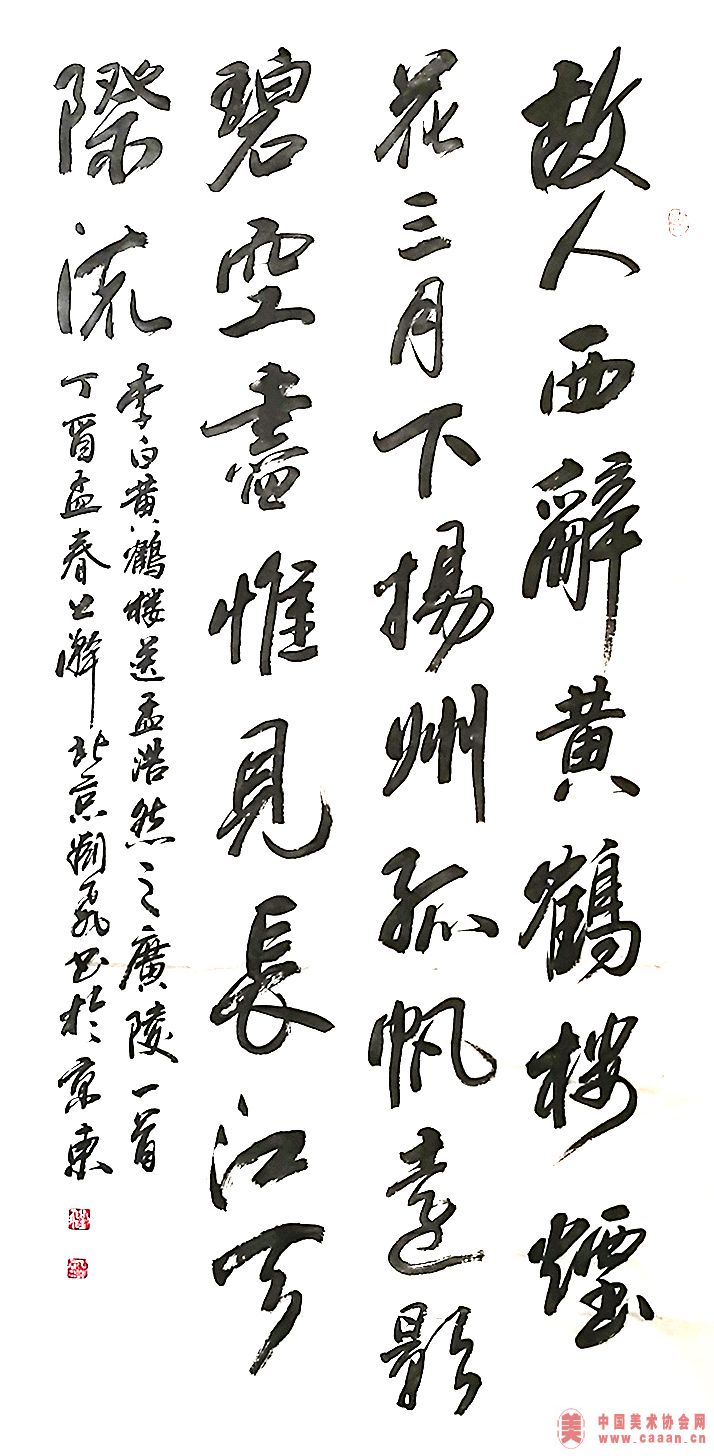 故人西辭黄鶴楼煙
花三月下揚州孤帆遠影
碧空盡惟見長江天
際流
李白黄鶴楼送孟浩然之廣陵一首
丁酉孟春上澣北京書於京東
中国美术协会网
www.caaan.cn